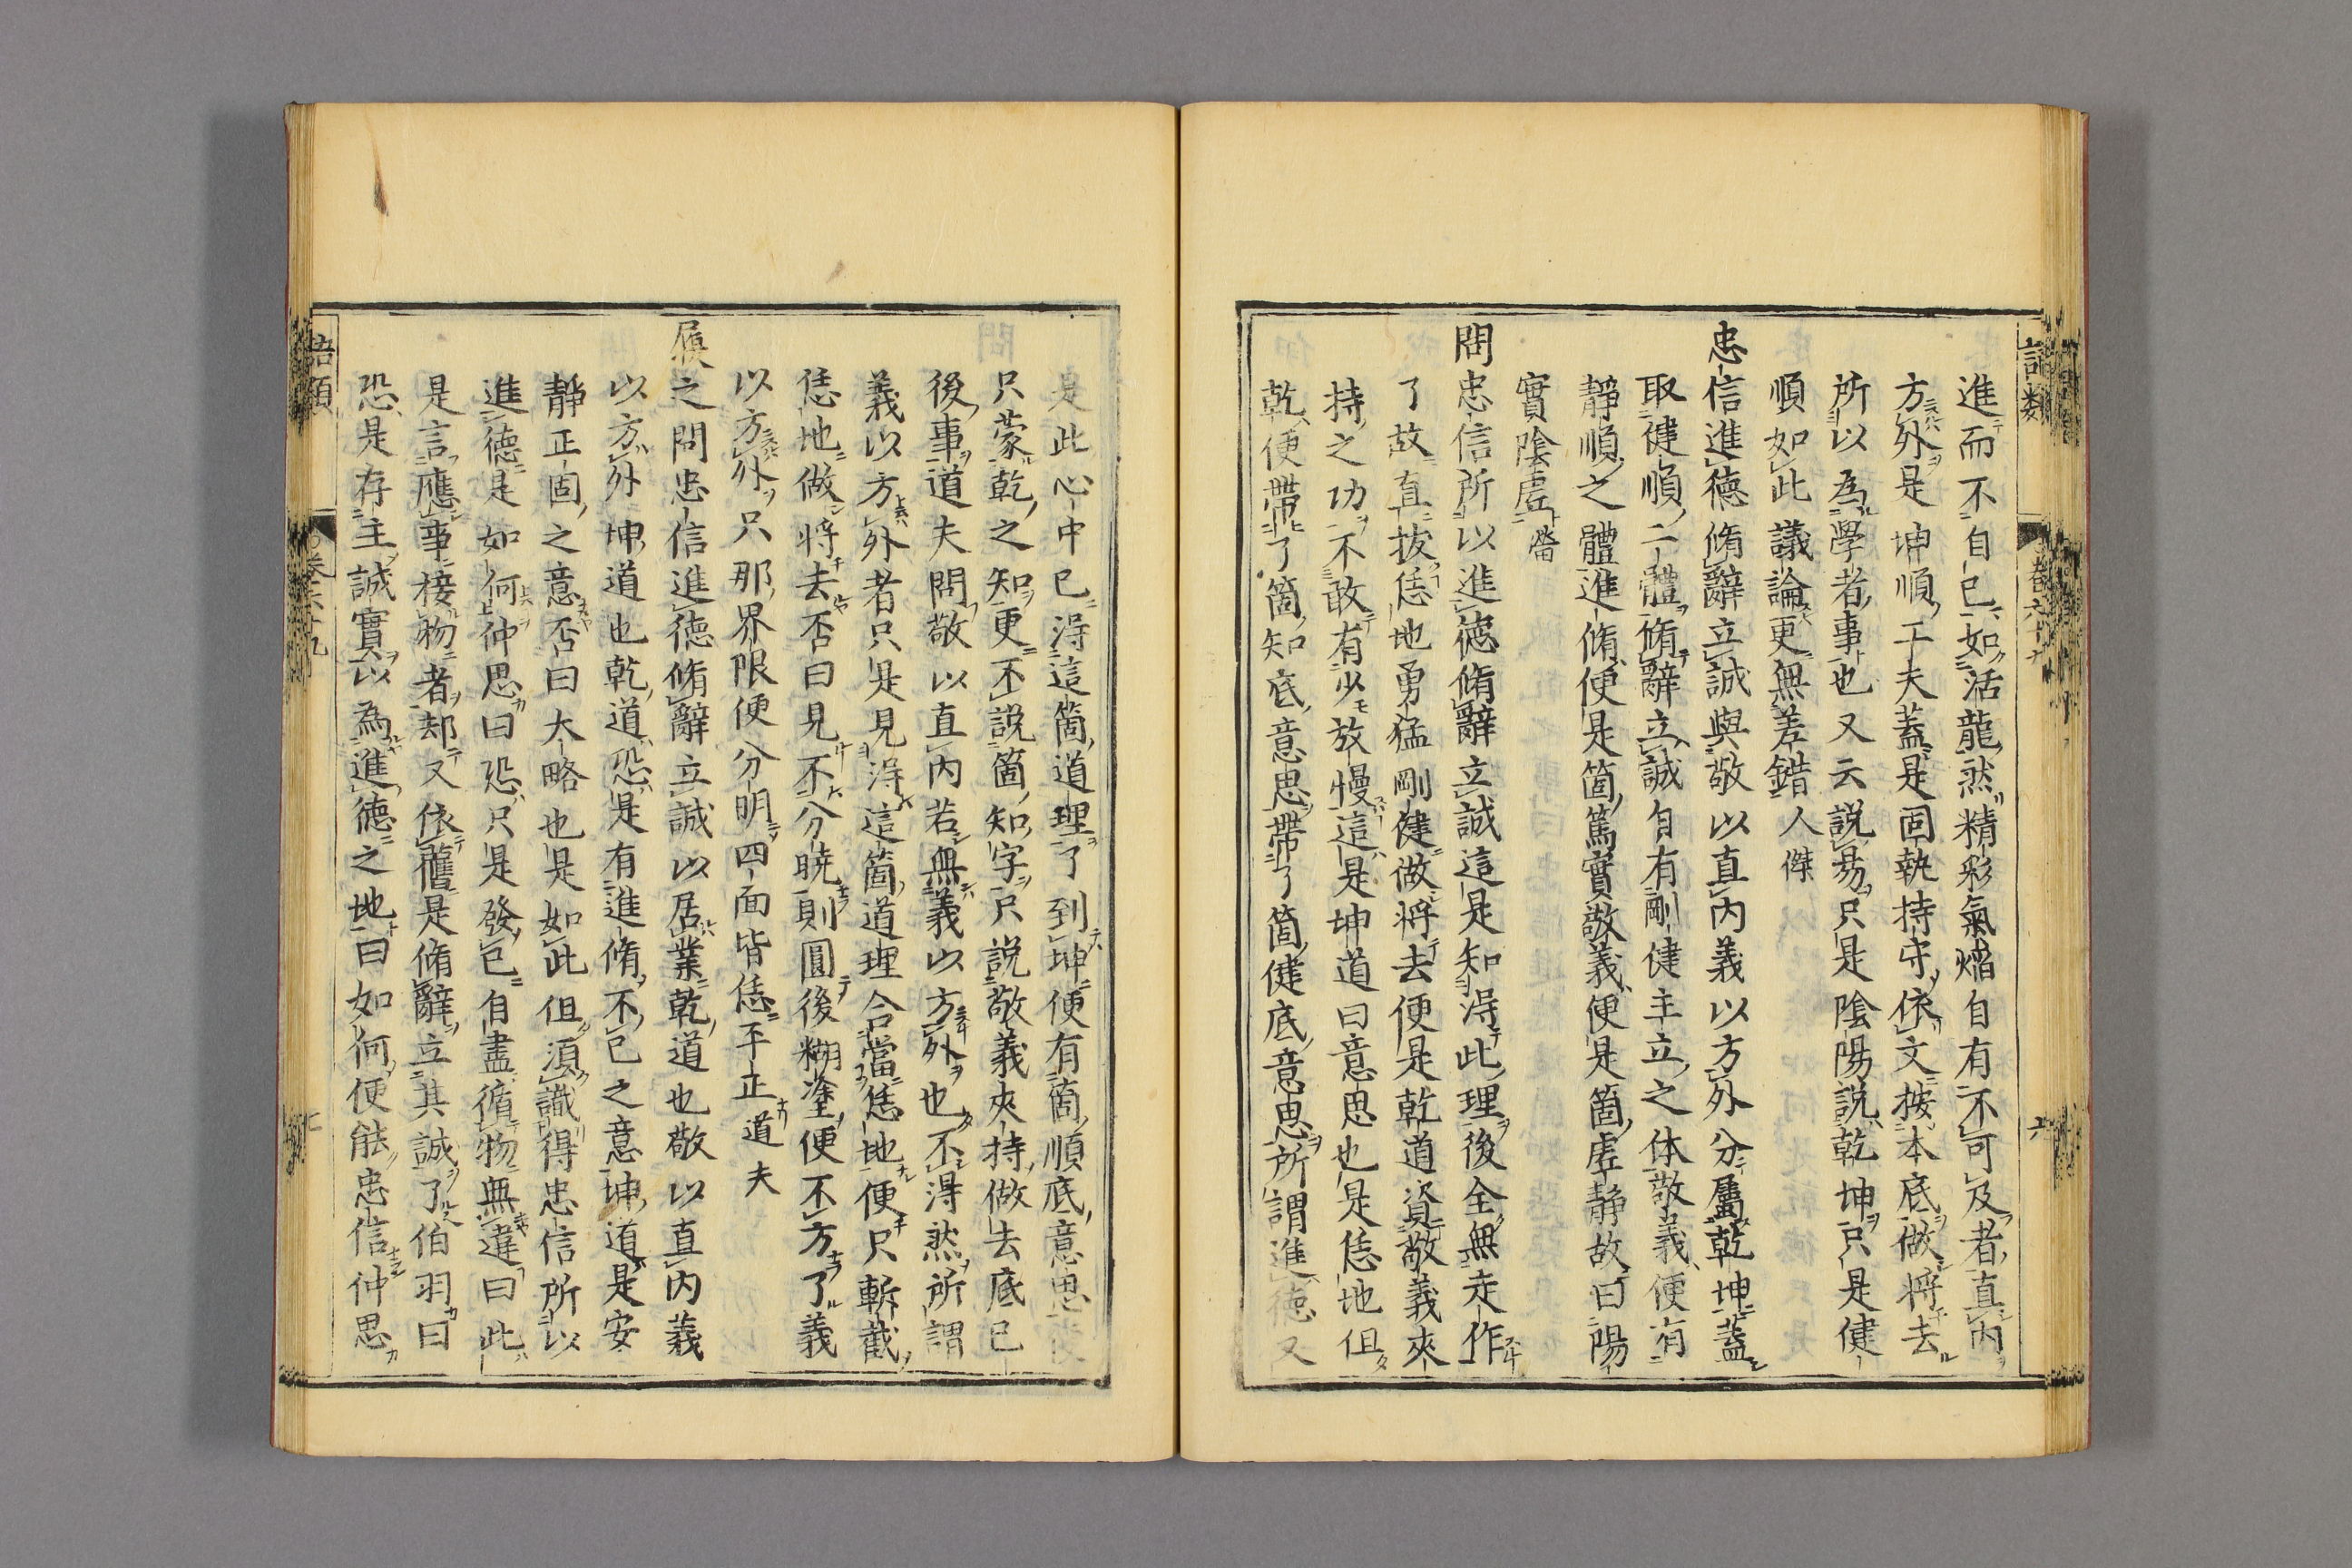 語類 卷六十九 六
進而不自已如活龍然精彩氣焔自有不可及者直內
方外是坤順工夫蓋是固執持守依文按本底做將去
所以為學者事也又云說易只是陰陽說乾坤只是健
順如此議論更無差錯人傑
忠信進德脩辭立誠與敬以直內義以方外分屬乾坤蓋
取健順二體脩辭立誠自有剛健主立之体敬義便有
靜順之體進脩便是箇篤實敬義便是箇虛静故曰陽
實陰虛㽦
問忠信所以進德脩辭立誠這是知得此理後全無走作
了故直拔恁地勇猛剛健做將去便是乾道資敬義夾
持之功不敢有少放慢這是坤道曰意思也是恁地但
乾便帶了箇知底意思帶了箇健底意思所謂進德又
是此心中已得這箇道理了到坤便有箇順底意思便
只蒙乾之知更不說箇知字只說敬義夾持做去底已
後事道夫問敬以直內若無義以方外也不得然所謂
義以方外者只是見得這箇道理合當恁地便只斬截
恁地做將去否曰見不分曉則圓後糊塗便不方了義
以方外只那界限便分明四面皆恁平正道夫
履之問忠信進德脩辭立誠以居業乾道也敬以直內義
以方外坤道也乾道恐是有進脩不已之意坤道是安
靜正固之意否曰大略也是如此但須識得忠信所以
進德是如何仲思曰恐只是發已自盡循物無違曰此
是言應事接物者却又依舊是脩辭立其誠了伯羽曰
恐是存主誠實以為進德之地曰如何便能忠信仲思
語類 卷六十九 七